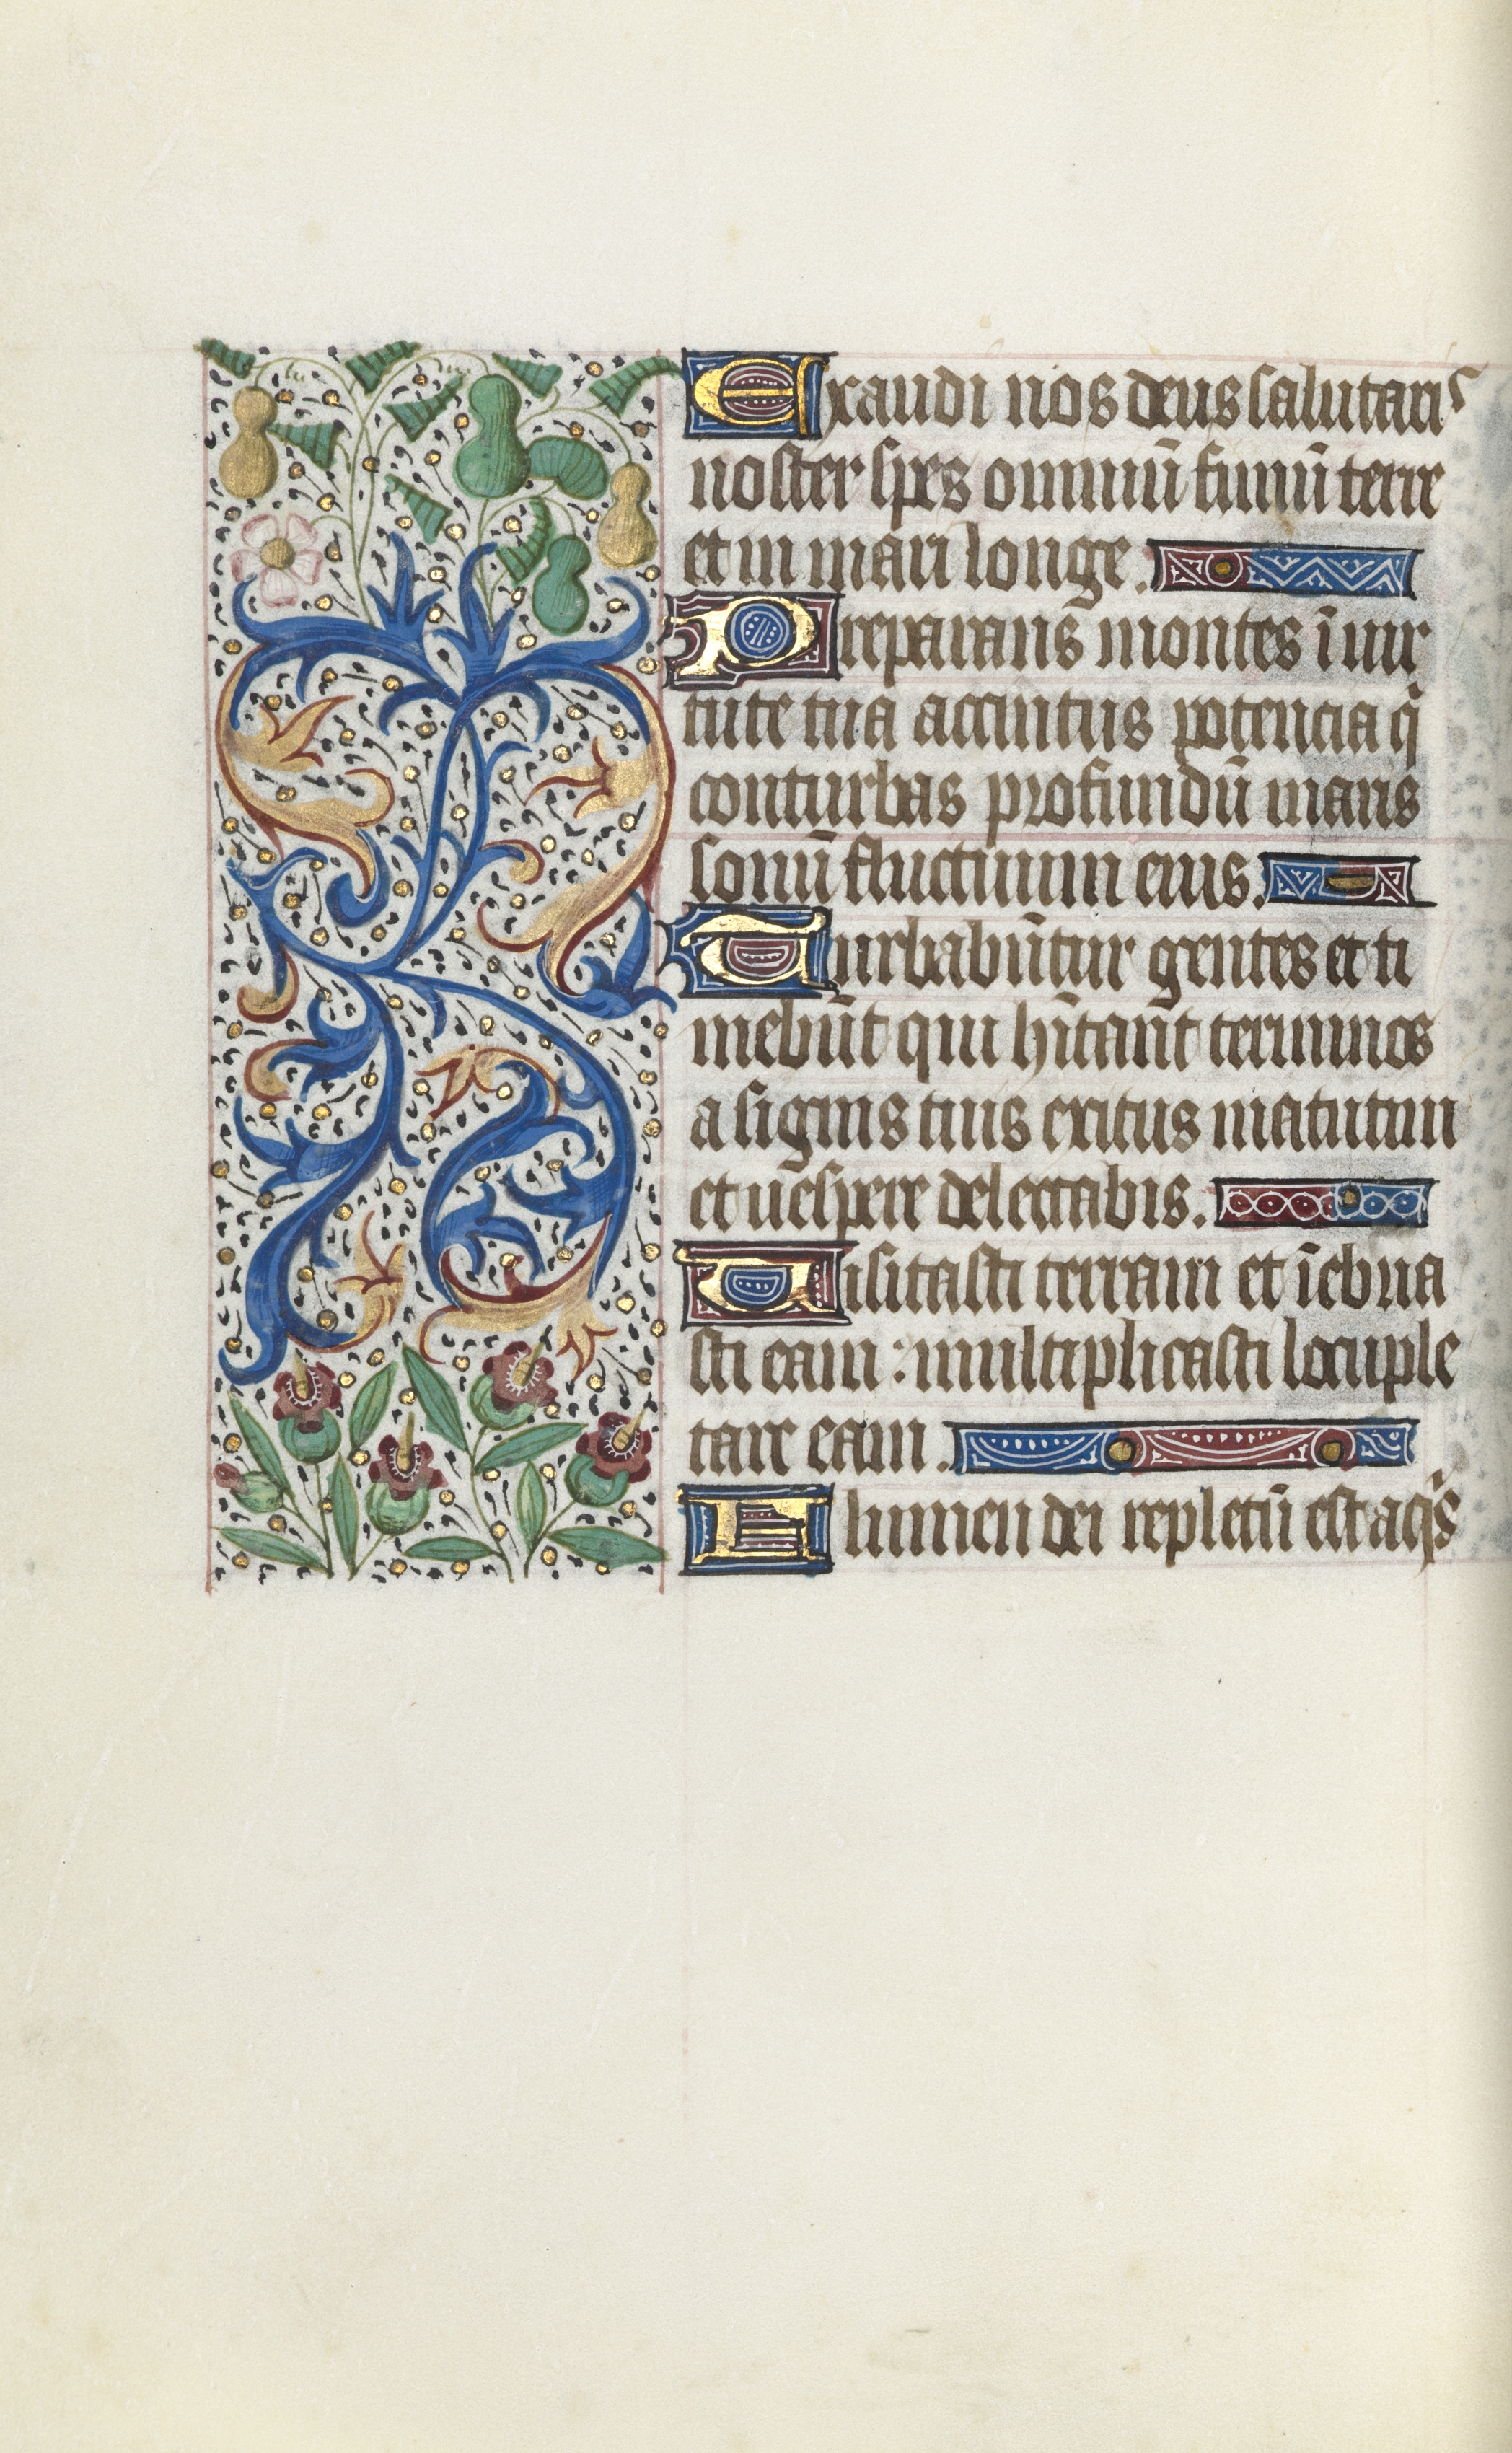 Exaudi nos deus salutaris
noster spes omniū finiū terre
et in mari longe.
Preparans montes ī vir
tute tua accintus potencia q̄
conturbas profundū maris
sonū fluctuum eius.
Turbabūtur gentes et ti
mebūt qui hītant terminos
a signis tuis exitus matutini
et vespere delectabis.
Visitasti terram et īebria
sti eam : multiplicasti locuple
tare eam.
Flumen dei repletū est aq̄s